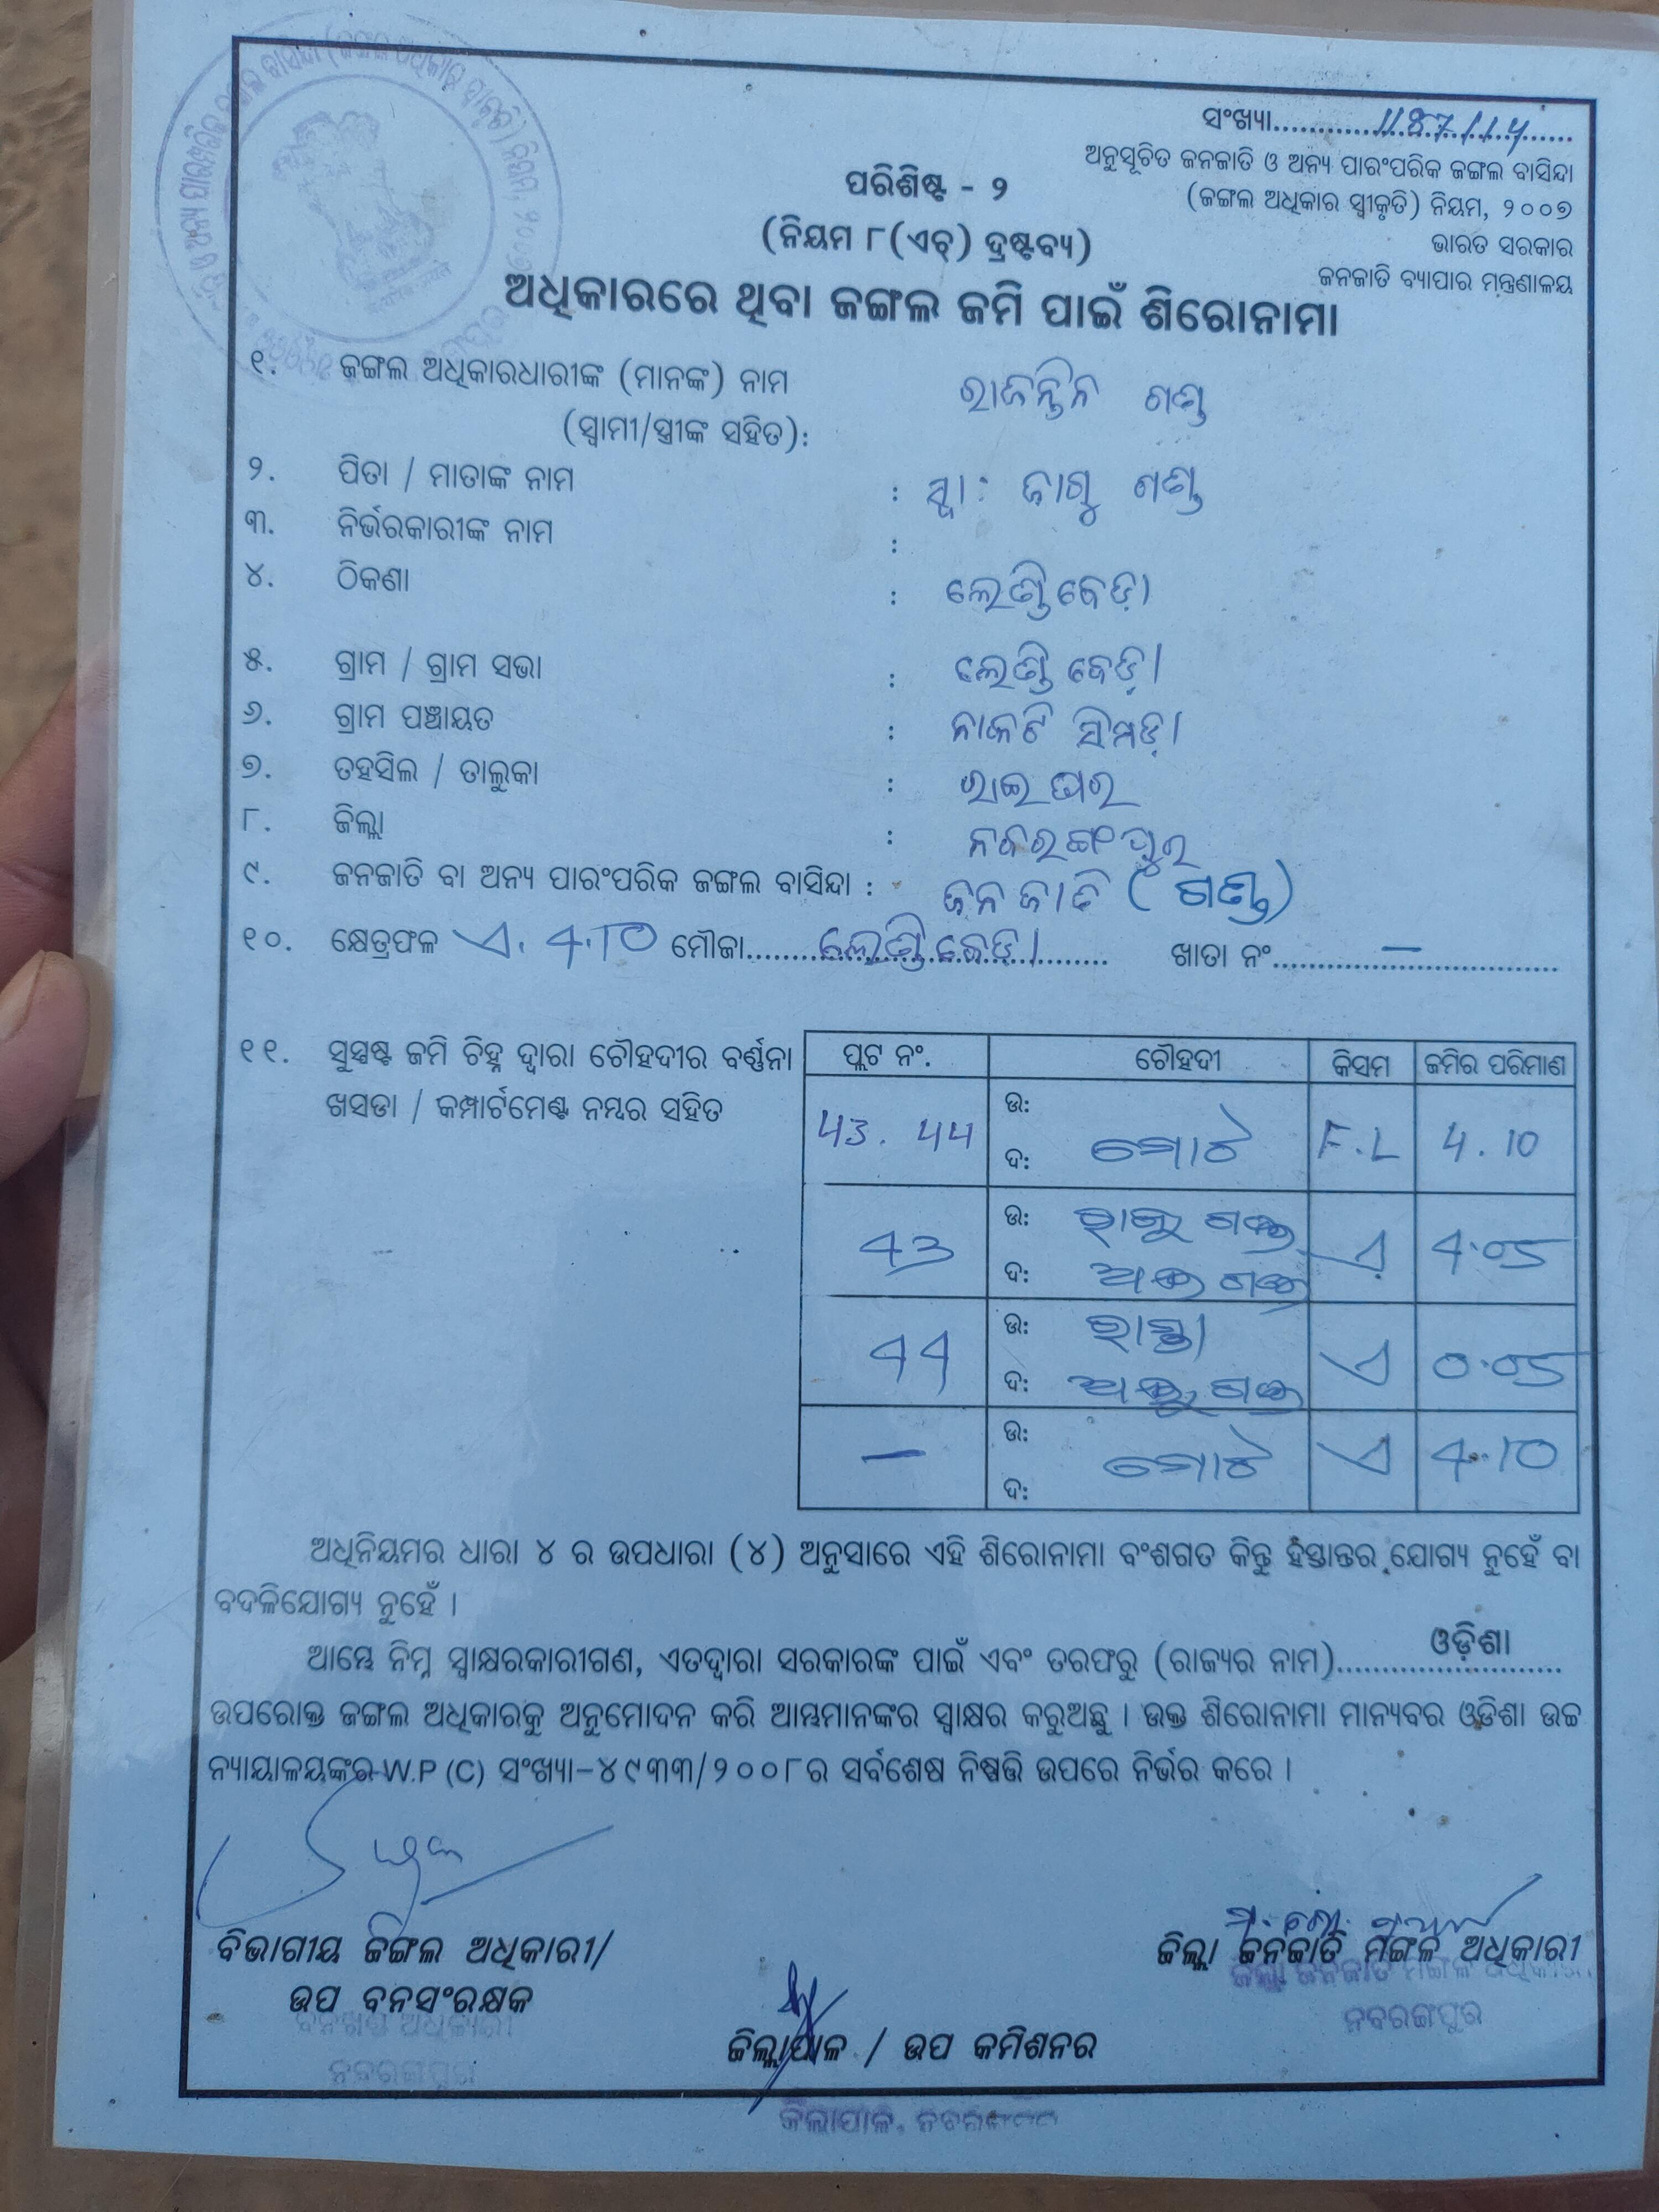 ସଂଖ୍ୟା 1187/14
ଅନୁସୂଚିତ ଜନଜାତି ଓ ଅନ୍ୟ ପାରଂପରିକ ଜଙ୍ଗଲ ବାସିନ୍ଦା
(ଜଙ୍ଗଲ ଅଧିକାର ସ୍ୱୀକୃତି) ନିୟମ, ୨୦୦୭
ଭାରତ ସରକାର
ଜନଜାତି ବ୍ୟାପାର ମନ୍ତ୍ରଣାଳୟ
ପରିଶିଷ୍ଟ - ୨
(ନିୟମ ୮(ଏଚ୍) ଦ୍ରଷ୍ଟବ୍ୟ)
ଅଧିକାରରେ ଥିବା ଜଙ୍ଗଲ ଜମି ପାଇଁ ଶିରୋନାମା
୧. ଜଙ୍ଗଲ ଅଧିକାରଧାରୀଙ୍କ (ମାନଙ୍କ) ନାମ ଗଣ୍ଡ
(ସ୍ୱାମୀ/ସ୍ତ୍ରୀଙ୍କ ସହିତ):
୨. ପିତା / ମାତାଙ୍କ ନାମ : ସ୍ୱା: ଜାଗୁ ଗଣ୍ଡ
୩. ନିର୍ଭରକାରୀଙ୍କ ନାମ :
୪. ଠିକଣା : ଲେଣ୍ଡିବେଡ଼ା
୫. ଗ୍ରାମ / ଗ୍ରାମ ସଭା : ଲେଣ୍ଡିବେଡ଼ା
୬. ଗ୍ରାମ ପଞ୍ଚାୟତ : ନାକଟି ସିମଡ଼ା
୭. ତହସିଲ / ତାଲୁକା : ରାଇଘର
୮. ଜିଲ୍ଲା : ନବରଙ୍ଗପୁର
୯. ଜନଜାତି ବା ଅନ୍ୟ ପାରଂପରିକ ଜଙ୍ଗଲ ବାସିନ୍ଦା : ଜନଜାତି (ଗଣ୍ଡ)
୧୦. କ୍ଷେତ୍ରଫଳ ଏ. 4.10 ମୌଜା ଲେଣ୍ଡିବେଡ଼ା ଖାତା ନଂ –
୧୧. ସୁସ୍ପଷ୍ଟ ଜମି ଚିହ୍ନ ଦ୍ୱାରା ଚୌହଦୀର ବର୍ଣ୍ଣନା
ଖସଡା / କମ୍ପାର୍ଟମେଣ୍ଟ ନମ୍ବର ସହିତ
ପ୍ଲଟ ନଂ. ଚୌହଦୀ କିସମ ଜମିର ପରିମାଣ
43. 44 ଉ: F.L 4.10
ଦ: ମୋଟ
43 ଉ: ଗଣ୍ଡ ଏ 4.05
ଦ: ଗଣ୍ଡ
44 ଉ: ରାସ୍ତା ଏ 0.05
ଦ: ଗଣ୍ଡ
– ଉ: ମୋଟ ଏ 4.10
ଦ:
ଅଧିନିୟମର ଧାରା ୪ ର ଉପଧାରା (୪) ଅନୁସାରେ ଏହି ଶିରୋନାମା ବଂଶଗତ କିନ୍ତୁ ହସ୍ତାନ୍ତର ଯୋଗ୍ୟ ନୁହେଁ ବା
ବଦଳିଯୋଗ୍ୟ ନୁହେଁ ।
ଆମ୍ଭେ ନିମ୍ନ ସ୍ୱାକ୍ଷରକାରୀଗଣ, ଏତଦ୍ୱାରା ସରକାରଙ୍କ ପାଇଁ ଏବଂ ତରଫରୁ (ରାଜ୍ୟର ନାମ) ଓଡ଼ିଶା
ଉପରୋକ୍ତ ଜଙ୍ଗଲ ଅଧିକାରକୁ ଅନୁମୋଦନ କରି ଆମ୍ଭମାନଙ୍କର ସ୍ୱାକ୍ଷର କରୁଅଛୁ । ଉକ୍ତ ଶିରୋନାମା ମାନ୍ୟବର ଓଡିଶା ଉଚ୍ଚ
ନ୍ୟାୟାଳୟଙ୍କର W.P (C) ସଂଖ୍ୟା-୪୯୩୩/୨୦୦୮ର ସର୍ବଶେଷ ନିଷ୍ପତ୍ତି ଉପରେ ନିର୍ଭର କରେ ।
ବିଭାଗୀୟ ଜଙ୍ଗଲ ଅଧିକାରୀ/
ଉପ ବନସଂରକ୍ଷକ
ବନଖଣ୍ଡ ଅଧିକାରୀ
ନବରଙ୍ଗପୁର
ଜିଲ୍ଲାପାଳ / ଉପ କମିଶନର
ଜିଲ୍ଲାପାଳ, ନବରଙ୍ଗପୁର
ଜିଲ୍ଲା ଜନଜାତି ମଙ୍ଗଳ ଅଧିକାରୀ
ଜିଲ୍ଲା ଜନଜାତି ମଙ୍ଗଳ ଅଧିକାରୀ
ନବରଙ୍ଗପୁର